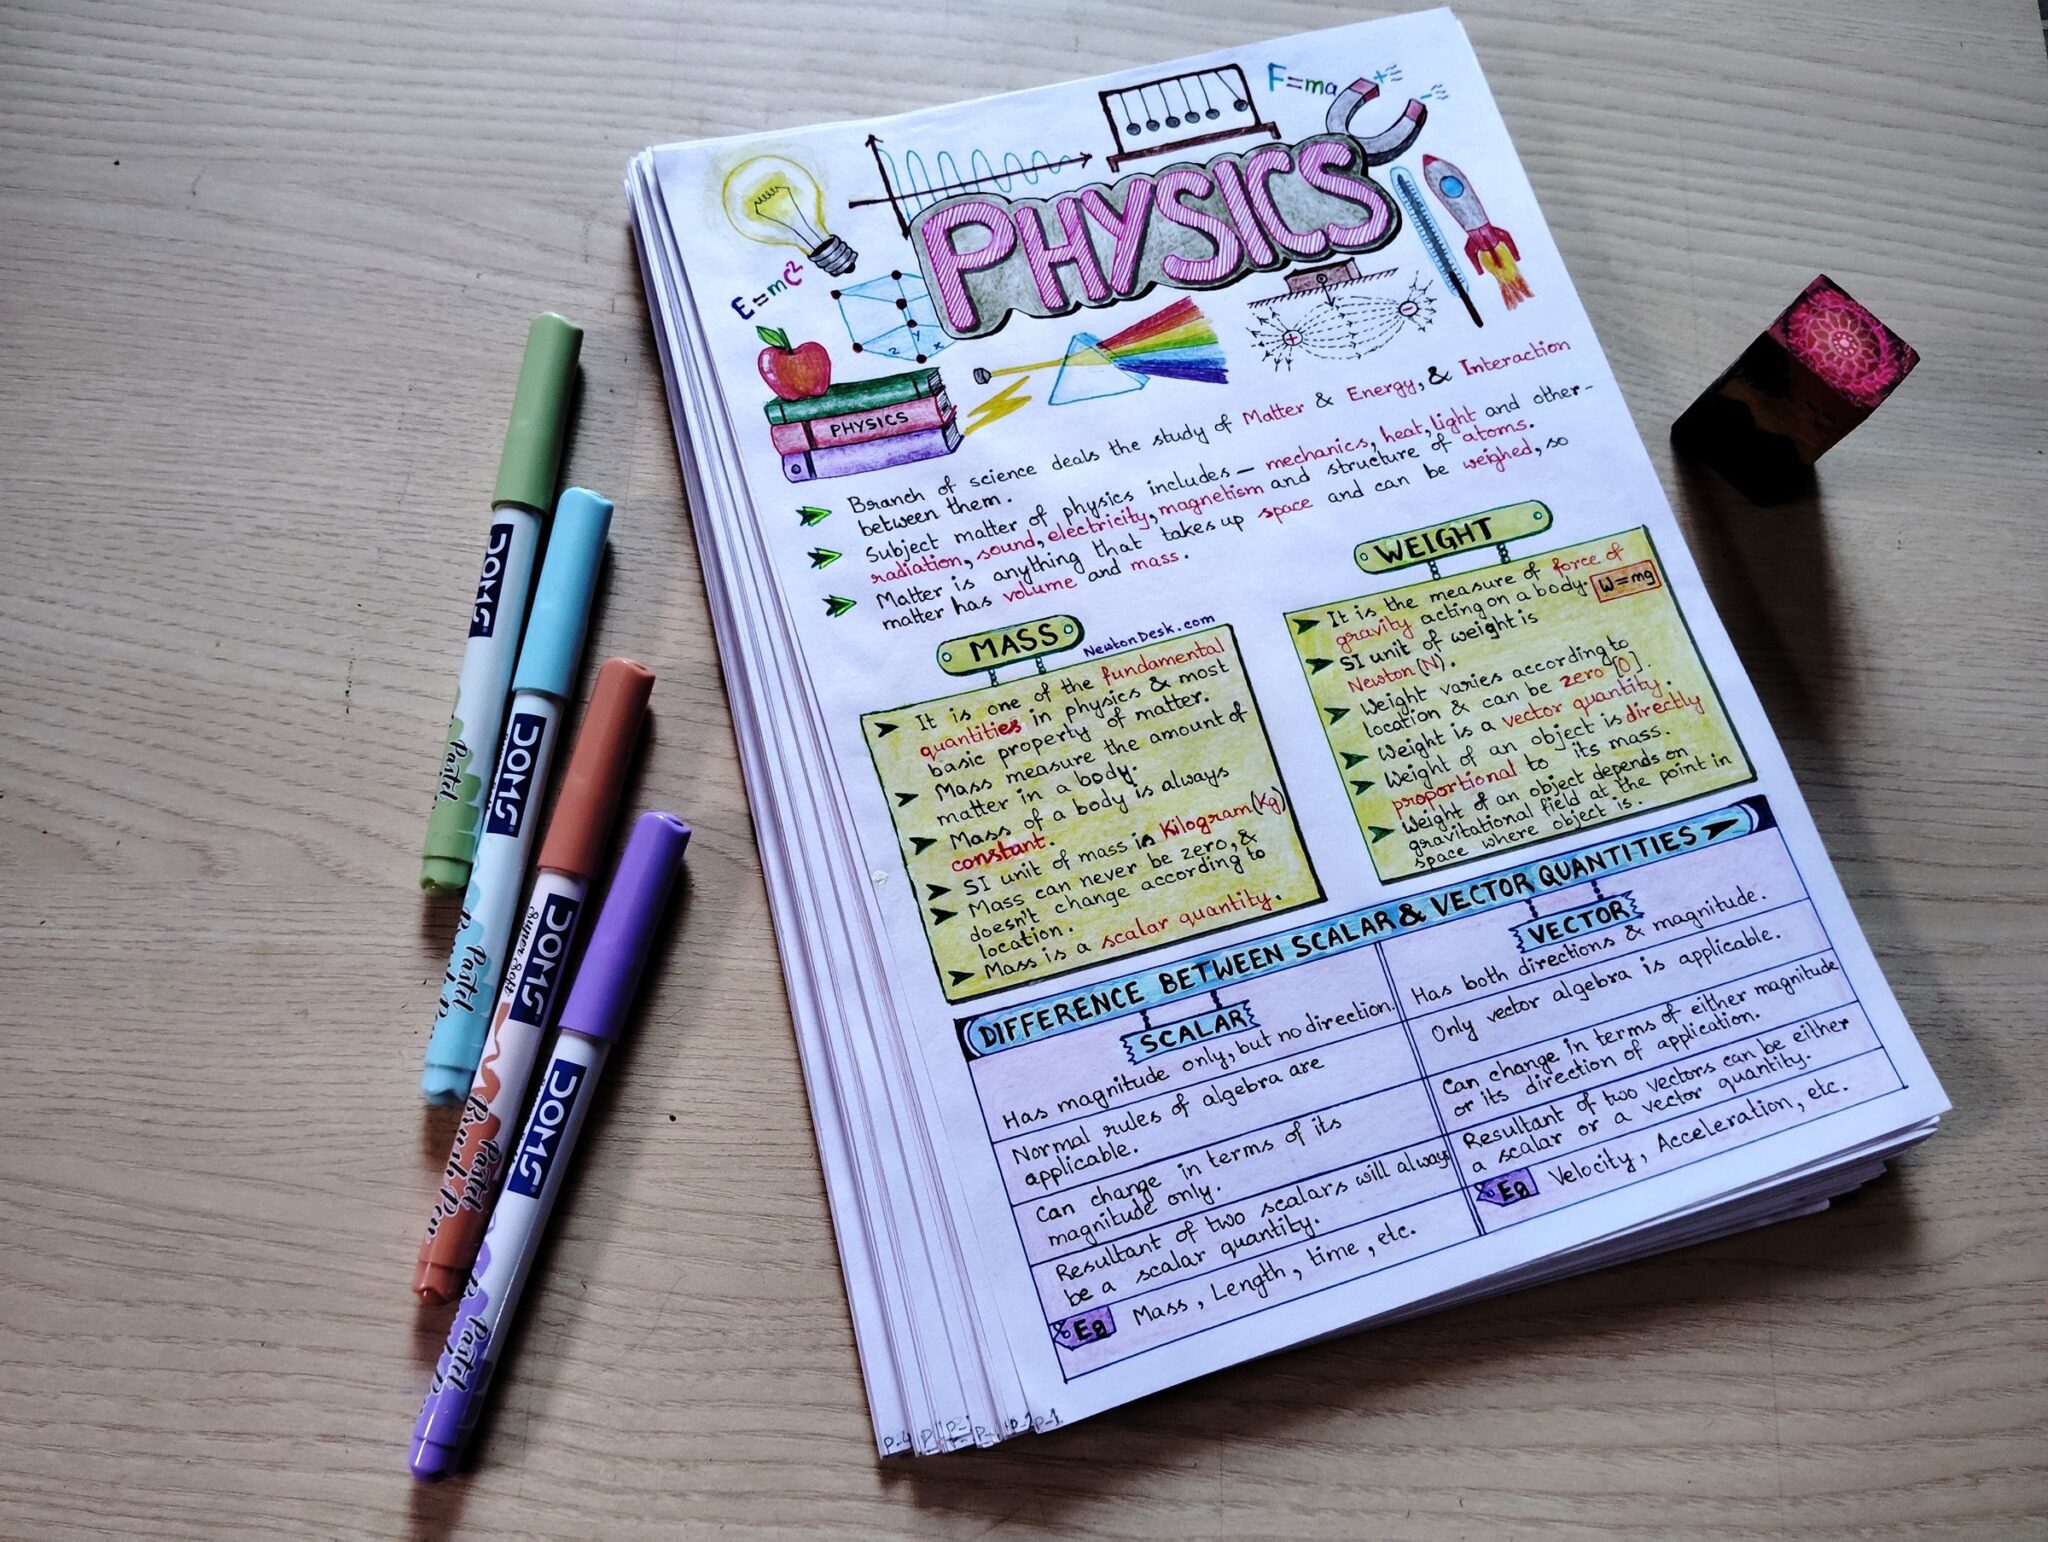 F=ma
+
-
PHYSICS
E=mc²
z y x
PHYSICS
+
-
Branch of science deals the study of Matter & Energy, & Interaction
between them.
Subject matter of physics includes - mechanics, heat, light and other-
radiation, sound, electricity, magnetism and structure of atoms.
Matter is anything that takes up space and can be weighed, so
matter has volume and mass.
MASS
NewtonDesk.com
It is one of the fundamental
quantities in physics & most
basic property of matter.
Mass measure the amount of
matter in a body.
Mass of a body is always
constant.
SI unit of mass is Kilogram(Kg)
Mass can never be zero, &
doesn't change according to
location.
Mass is a scalar quantity.
WEIGHT
It is the measure of force of
gravity acting on a body. W=mg
SI unit of weight is
Newton(N).
Weight varies according to
location & can be zero [0].
Weight is a vector quantity.
Weight of an object is directly
proportional to its mass.
Weight of an object depends on
gravitational field at the point in
space where object is.
DIFFERENCE BETWEEN SCALAR & VECTOR QUANTITIES
SCALAR
Has magnitude only, but no direction.
Normal rules of algebra are
applicable.
Can change in terms of its
magnitude only.
Resultant of two scalars will always
be a scalar quantity.
Eg Mass, Length, time, etc.
VECTOR
Has both directions & magnitude.
Only vector algebra is applicable.
Can change in terms of either magnitude
or its direction of application.
Resultant of two vectors can be either
a scalar or a vector quantity.
Eg Velocity, Acceleration, etc.
P-4
P-2
P-1
DOMS
Pastel
DOMS
Pastel
DOMS
Super Soft
Pastel
Brush Pen
DOMS
Pastel